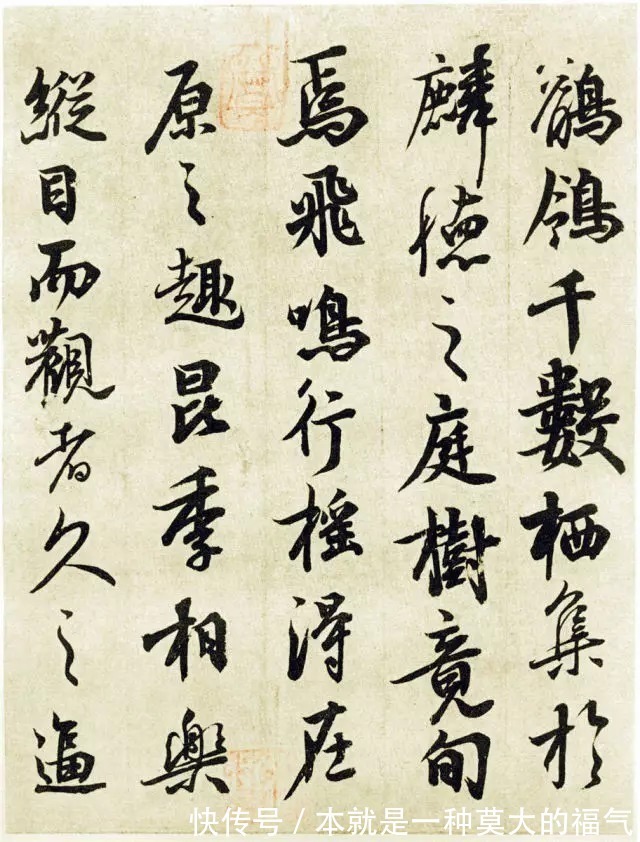 鶺鴒千數栖集於
麟德之庭樹竟旬
焉飛鳴行搖得在
原之趣昆季相樂
縱目而觀者久之逼
快传号/本就是一种莫大的福气